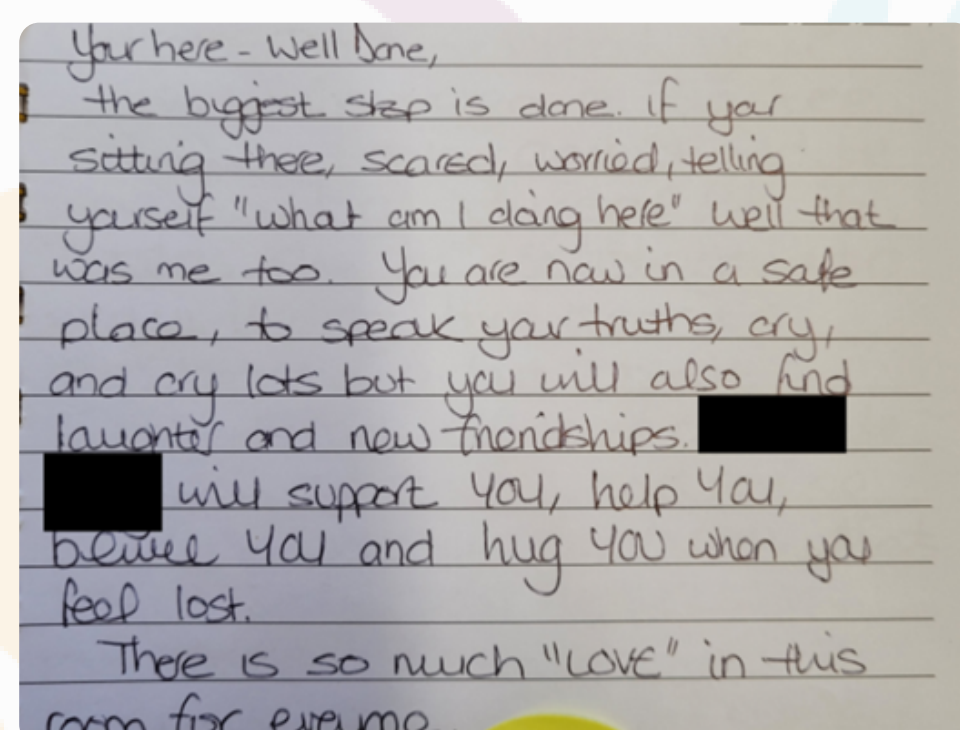 Your here - Well Done,
the biggest step is done. If your
sitting there, scared, worried, telling
yourself "what am I doing here" well that
was me too. You are now in a safe
place, to speak your truths, cry,
and cry lots but you will also find
laughter and new friendships.
will support you, help you,
believe you and hug you when you
feel lost.
There is so much "LOVE" in this
room for everyone